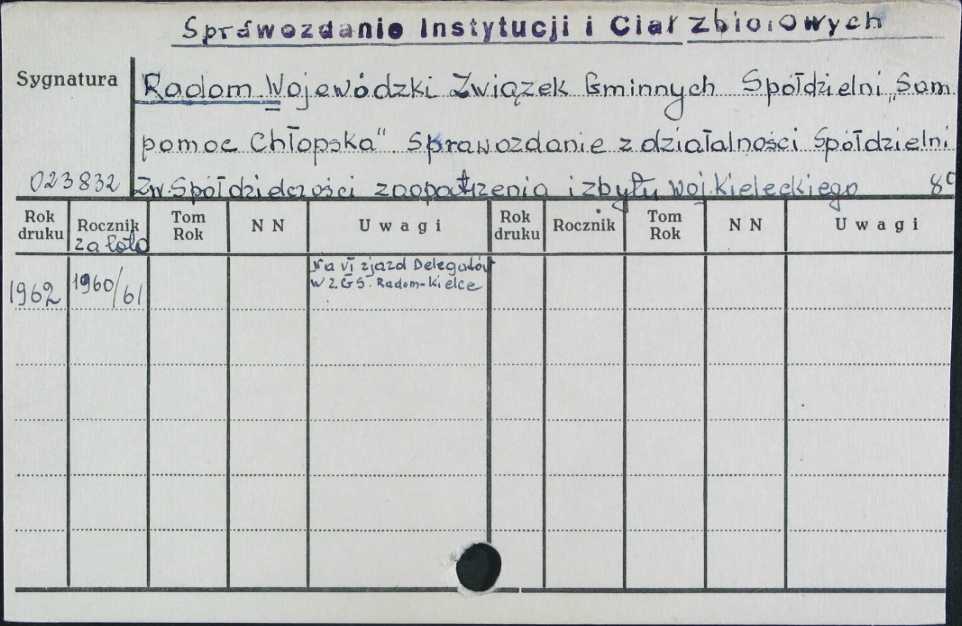 Sprawozdanie Instytucji i Ciał Zbiorowych
Sygnatura
Radom. Wojewódzki Związek Gminnych Spółdzielni „Sam
pomoc Chłopska". Sprawozdanie z działalności Spółdzielni
023832 Zw. Spółdzielczości zaopatrzenia i zbytu woj. kieleckiego 8°
Rok druku Rocznik za lata Tom Rok N N Uwagi Rok druku Rocznik Tom Rok N N Uwagi
1962 1960/61 Na VI zjazd Delegatów
WZGS. Radom-Kielce